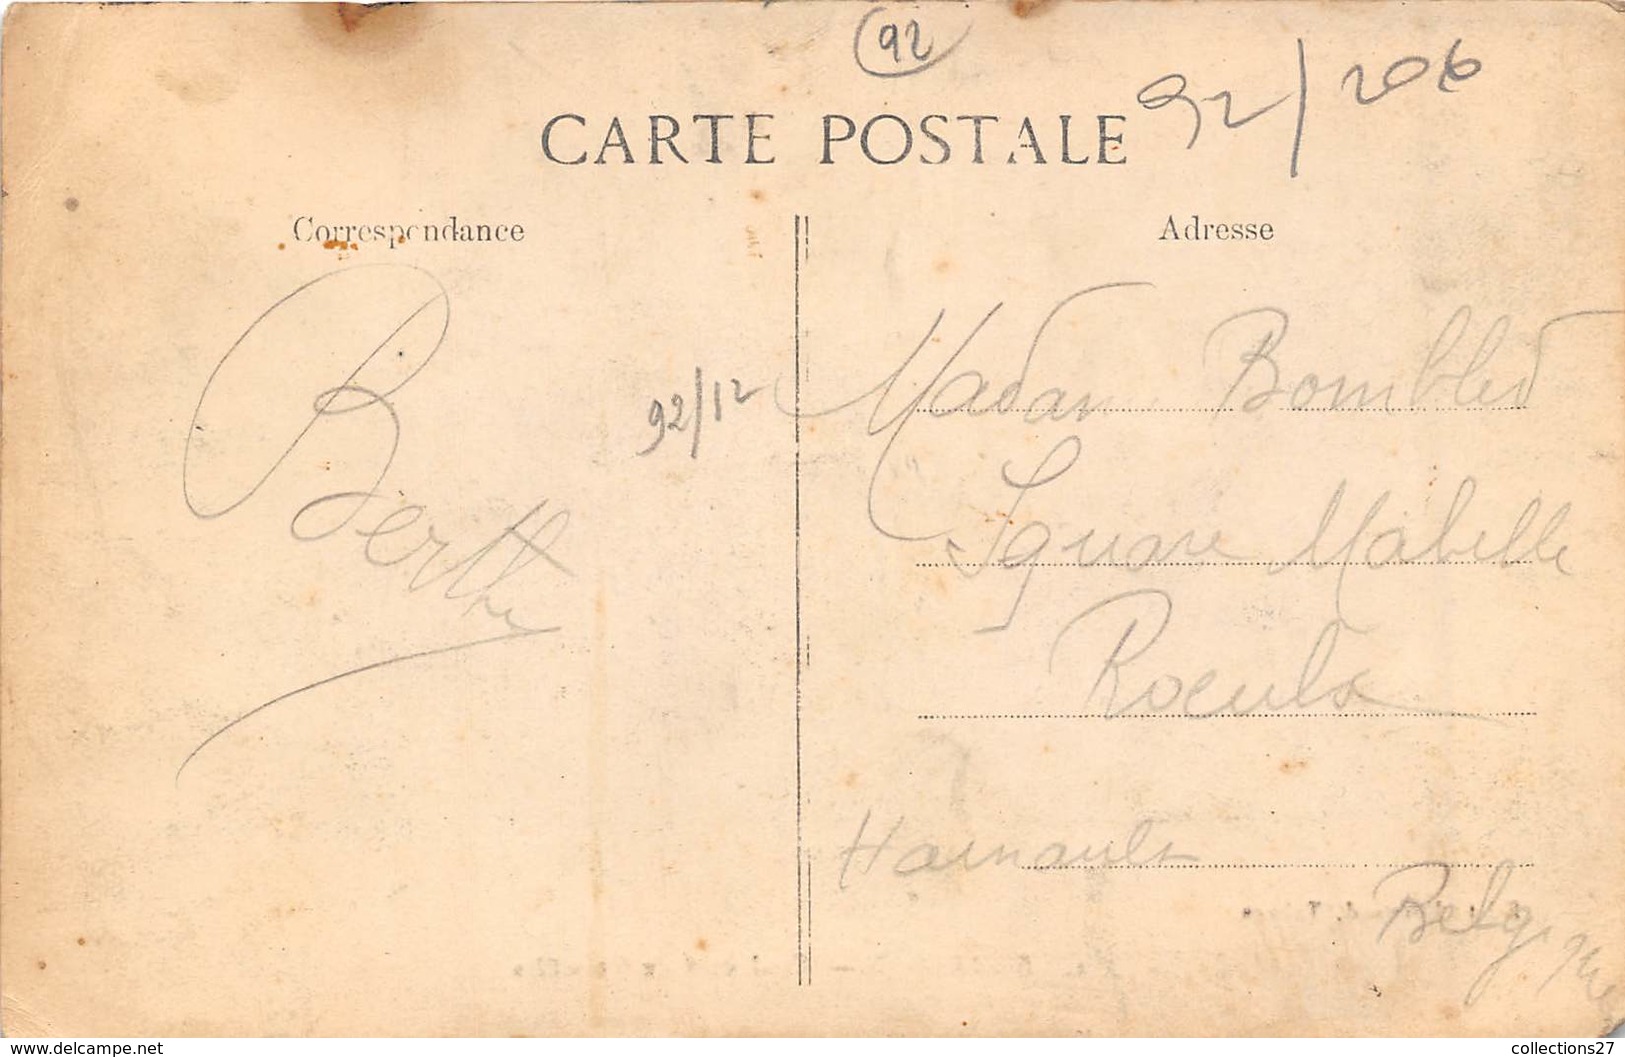 92
92/206
CARTE POSTALE
Correspondance
Adresse
Berthe
92/12
Madam Bombled
Square Mabille
Roeulx
Hainault
Belgique
www.delcampe.net
collections27